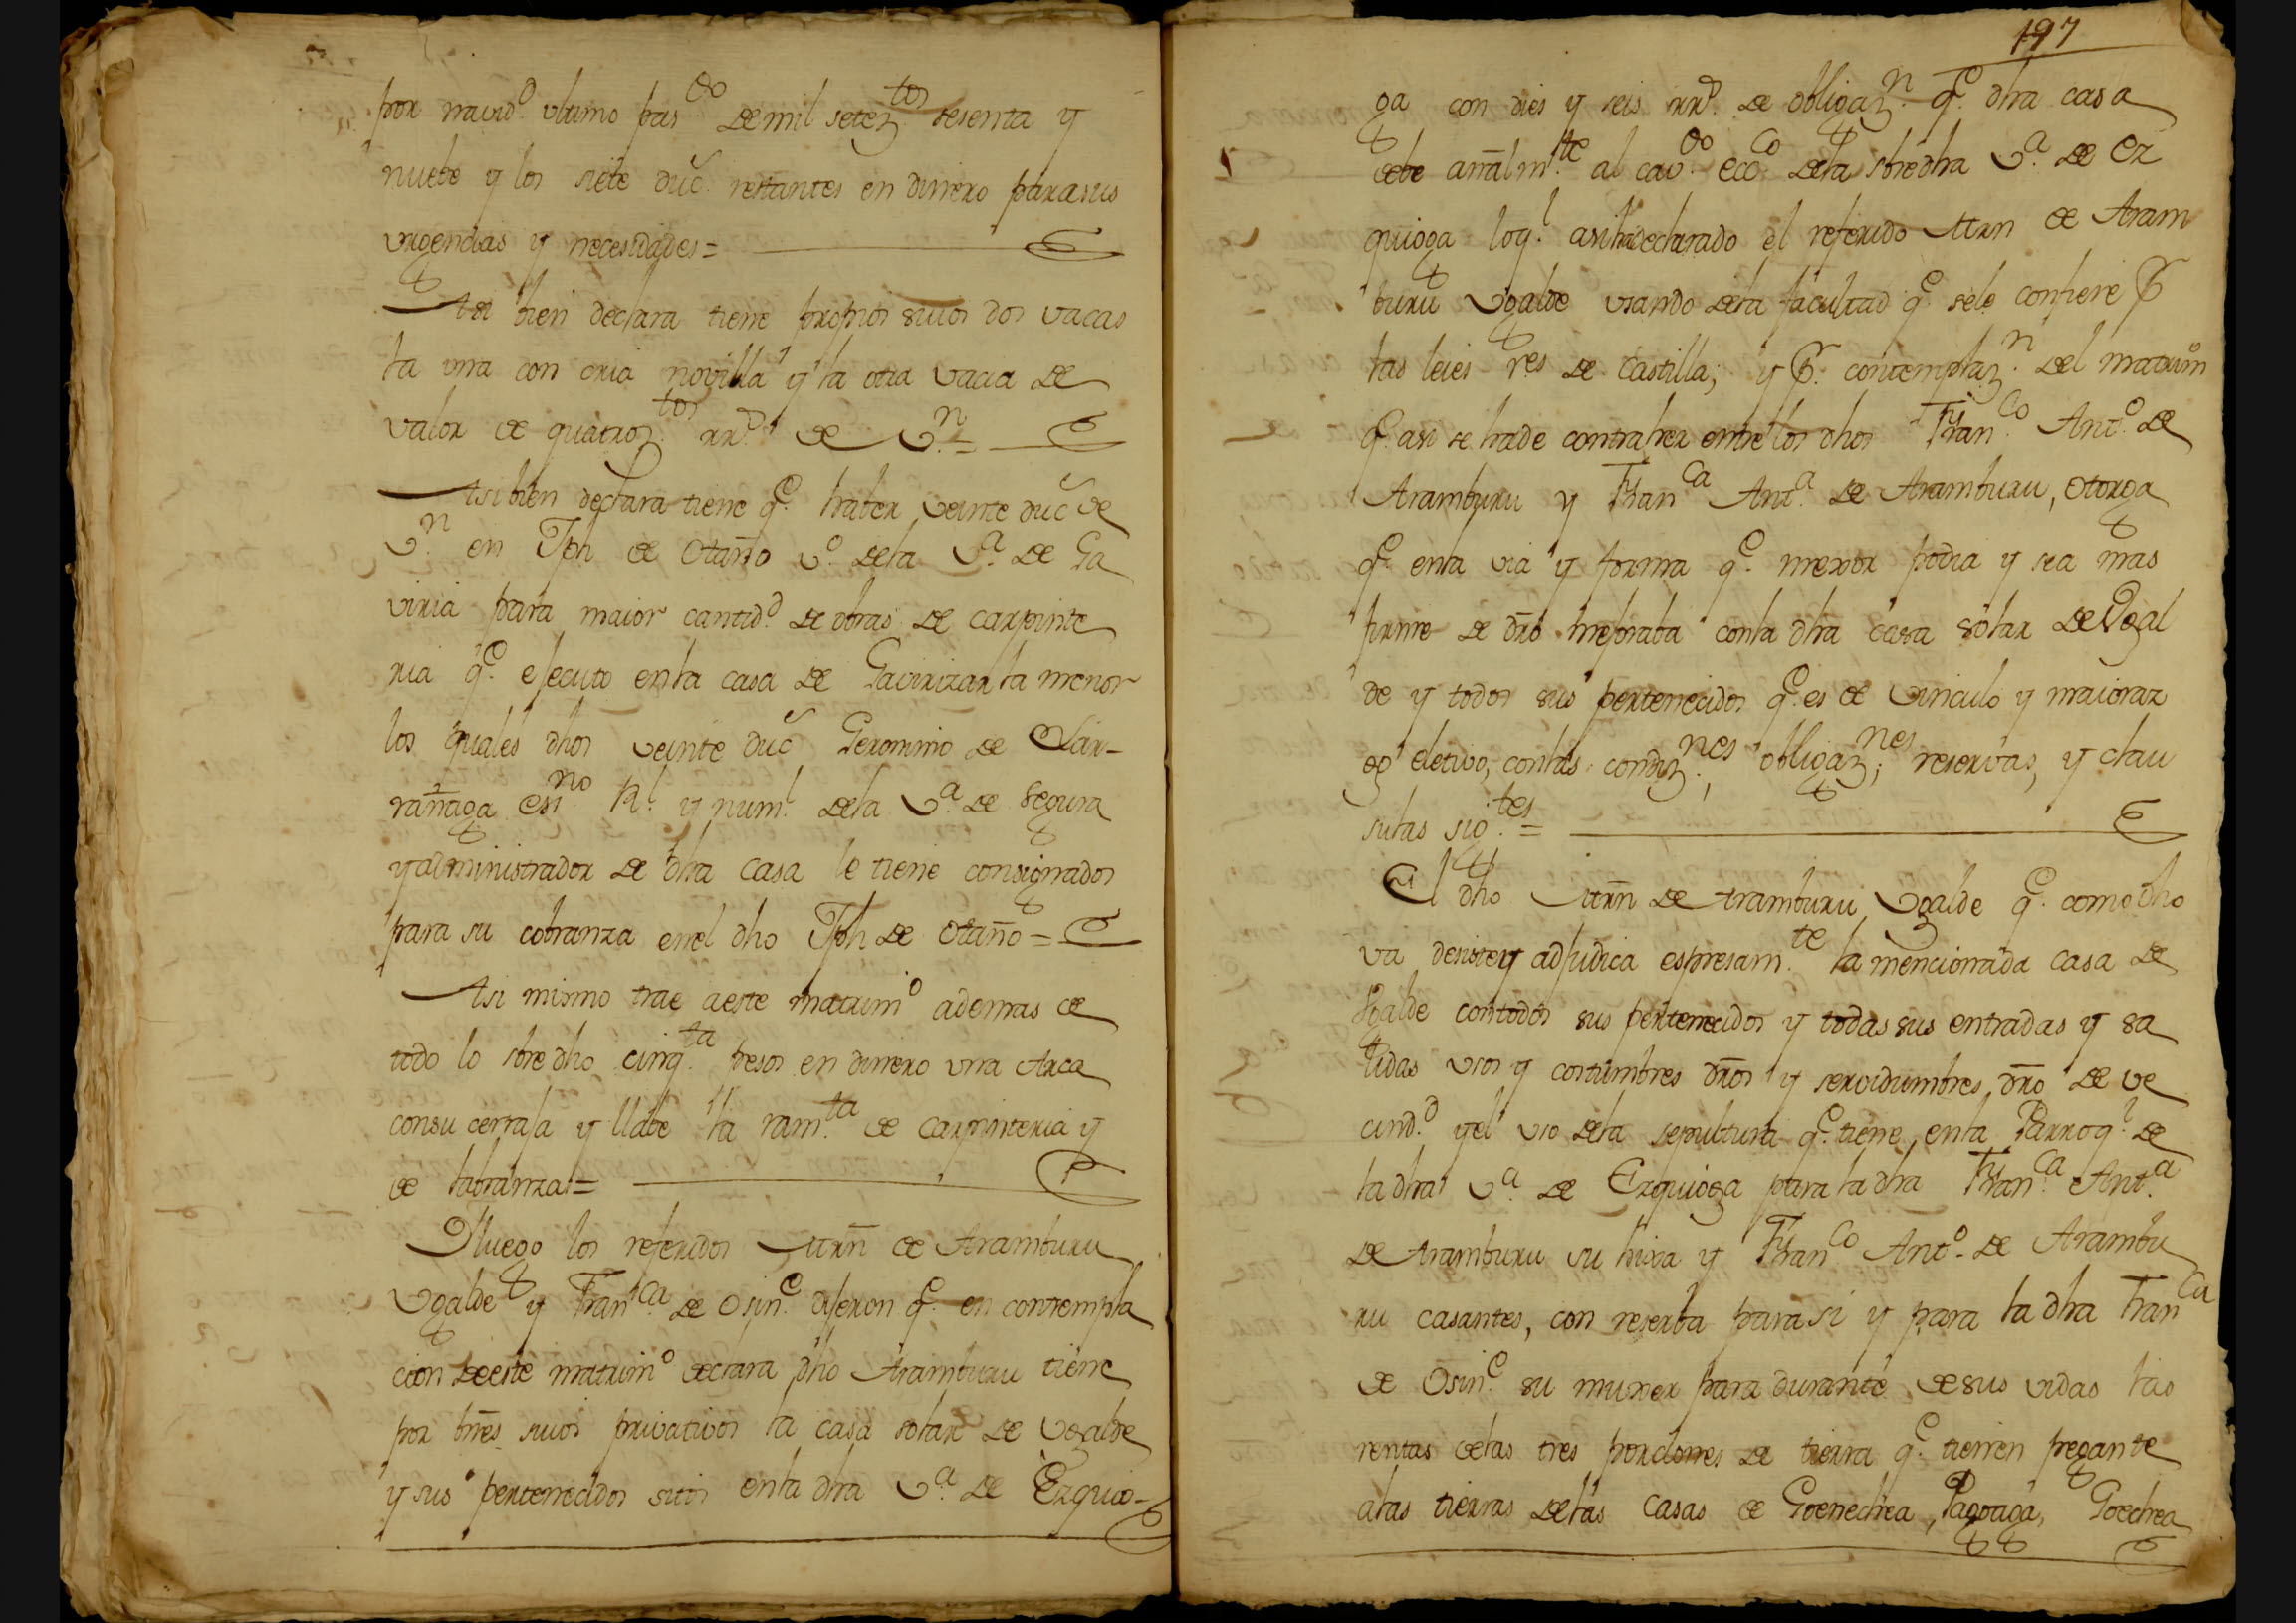 por navid.d ultimo pas.do de mil setez.tos sesenta y
nuebe y los siete duc.s restantes en dinero para sus
urgencias y necesidades =
Asi bien declara tiene propios suios dos vacas
la una con cria novilla y la otra vacia de
valor de quatroz.tos rr.s de v.n =
Asi bien declara tiene q.e haber veinte duc.s de
v.n en Jph de Otaño v.o de la v.a de Ga
viria para maior cantid.d de obras de carpinte
ria q.e ejecuto en la casa de Gavirizar la menor
los quales dhos veinte duc.s Geronimo de Lar-
rañaga es.no R.l y num.l de la V.a de Segura
y administrador de dha casa le tiene consignados
para su cobranza en el dho Jph de Otaño =
Asi mismo trae a este matrim.o ademas de
todo lo sbredho cinq.ta pesos en dinero una Arca
con su cerraja y llabe la ram.ta de carpinteria y
de labranza =
I luego los referidos Mrn de Aramburu
Ugalde y Fran.ca de Osin.e dijeron q.e en contempla
cion de este matrim.o declara dho Aramburu tiene
por bnes suios privativos la casa solar de Ugalde
y sus pertenecidos sitos en la dha V.a de Ezquio-
197
ga con dies y seis rr.s de obligaz.n q.e dha casa
debe añalm.te al cav.do ecc.co de la sbredha V.a de Ez
quioga loq.l asi ha declarado el referido Mrn de Aram
buru Ugalde usando de la facultad q.e sele confiere p.r
las leies r.es de Castilla, y p.r contemplaz.n del matrim.o
q.e asi se ha de contraher entre los dhos Fran.co Ant.o de
Aramburu y Fran.ca Ant.a de Aramburu, otorga
q.e en la via y forma q.e mexor podia y sea mas
firme de dro mejoraba con la dha casa solar de Ugal
de y todos sus pertenecidos q.e es de vinculo y maioraz
go eletivo, con las condiz.nes, obligaz.nes, reservas, y clau
sulas sig.tes =
El dho Mrn de Aramburu Ugalde q.e como dho
va desiste y adjudica espresam.te la mencionada casa de
Ugalde con todos sus pertenecidos y todas sus entradas y sa
lidas usos y costumbres dros y servidumbres, dro de ve
cind.d y el uso de la sepultura q.e tiene en la Parroq.l de
la dha V.a de Ezquioga para la dha Fran.ca Ant.a
de Aramburu su hixa y Fran.co Ant.o de Arambu
ru casantes, con reserba para si y para la dha Fran.ca
de Osin.e su muxer para durante de sus vidas las
rentas de las tres porciones de tierra q.e tienen pegante
a las tierras de las casas de Goenechea, Pagoaga, Goechea